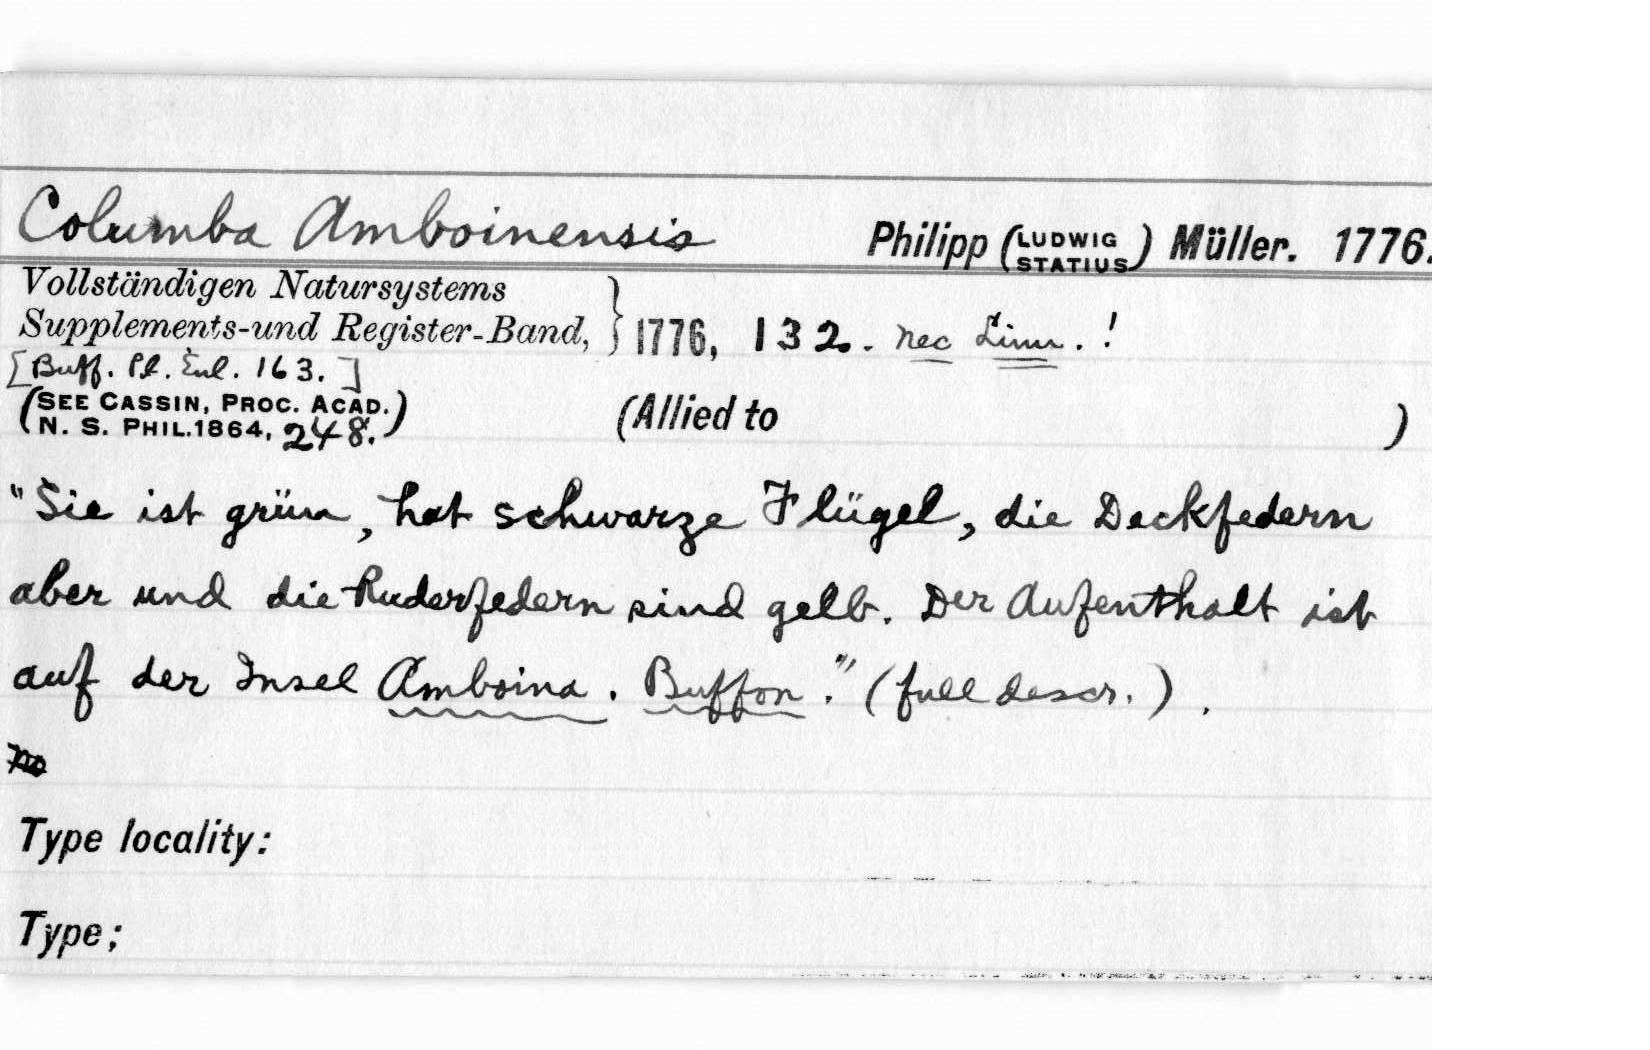 Columba Amboinensis Philipp (LUDWIG STATIUS) Müller. 1776.
Vollständigen Natursystems
Supplements-und Register-Band, } 1776, 132. nec Linn. !
[Buff. Pl. Enl. 163.]
(SEE CASSIN, PROC. ACAD.
N. S. PHIL. 1864, 248.) (Allied to )
"Sie ist grün, hat schwarze Flügel, die Deckfedern
aber und die Ruderfedern sind gelb. Der Aufenthalt ist
auf der Insel Amboina. Buffon." (full descr.).
no
Type locality:
Type;